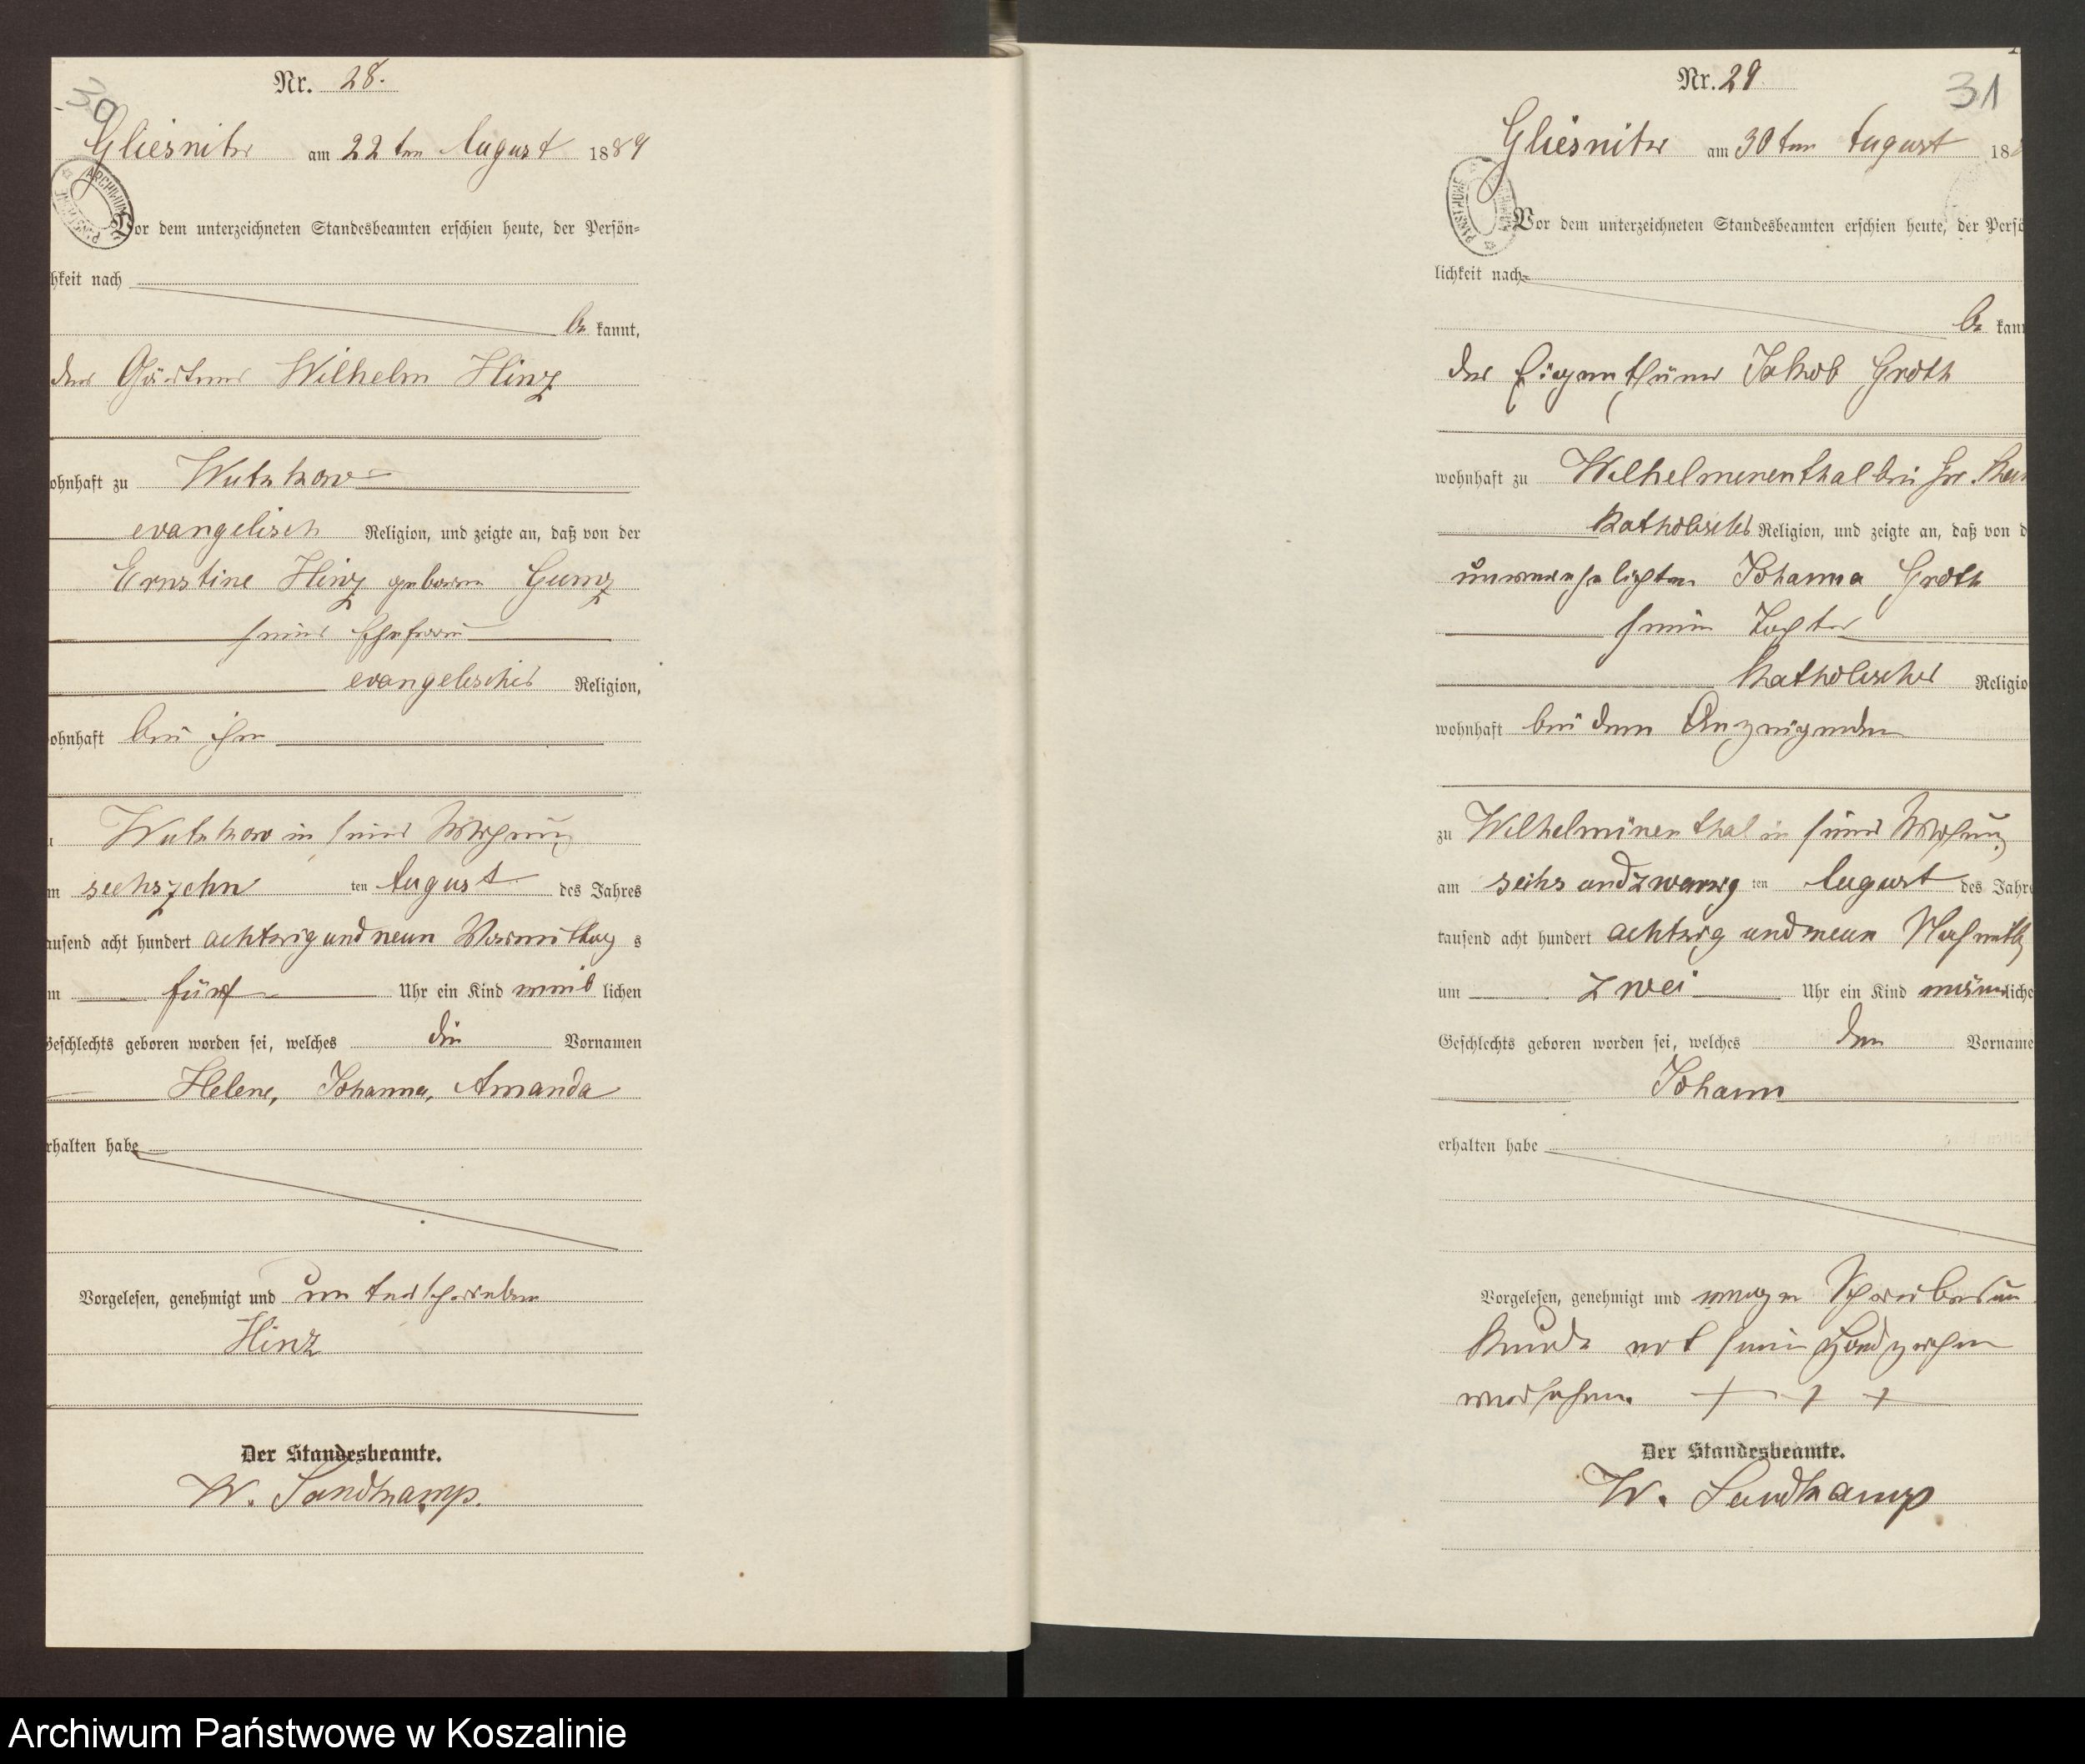 Nr. 28.
30
Gliesnitz am 22ten August 1889
Vor dem unterzeichneten Standesbeamten erschien heute, der Persön-
hkeit nach
be kannt,
der Gärtner Wilhelm Hinz
ohnhaft zu Wutzkow
evangelisch Religion, und zeigte an, daß von der
Ernstine Hinz geboren Gumz
seiner Ehefrau
evangelischer Religion,
ohnhaft bei ihm
Wutzkow in seiner Wohnung
m sechszehn ten August des Jahres
ausend acht hundert achtzig und neun Vormittag s
m fünf Uhr ein Kind weib lichen
Geschlechts geboren worden sei, welches die Vornamen
Helene, Johanna, Amanda
rhalten habe
Vorgelesen, genehmigt und unterschrieben
Hinz
Der Standesbeamte.
W. Sandkamp.
Nr. 29
31
Gliesnitz am 30ten August 18
Vor dem unterzeichneten Standesbeamten erschien heute, der Persö
lichkeit nach
be kan
der Eigenthümer Jakob Groth
wohnhaft zu Wilhelminenthal bei Gr.
katholischer Religion, und zeigte an, daß von d
unverehelichten Johanna Groth
seine Tochter
katholischer Religio
wohnhaft bei dem Anzeigenden
zu Wilhelminenthal in seiner Wohnung
am sechs und zwanzig ten August des Jahre
tausend acht hundert achtzig und neun Nachmittg
um zwei Uhr ein Kind männ liche
Geschlechts geboren worden sei, welches den Vorname
Johann
erhalten habe
Vorgelesen, genehmigt und wegen Schreibensun
kunde mit sein Handzeichen
versehen. + + +
Der Standesbeamte.
W. Sandkamp
Archiwum Państwowe w Koszalinie